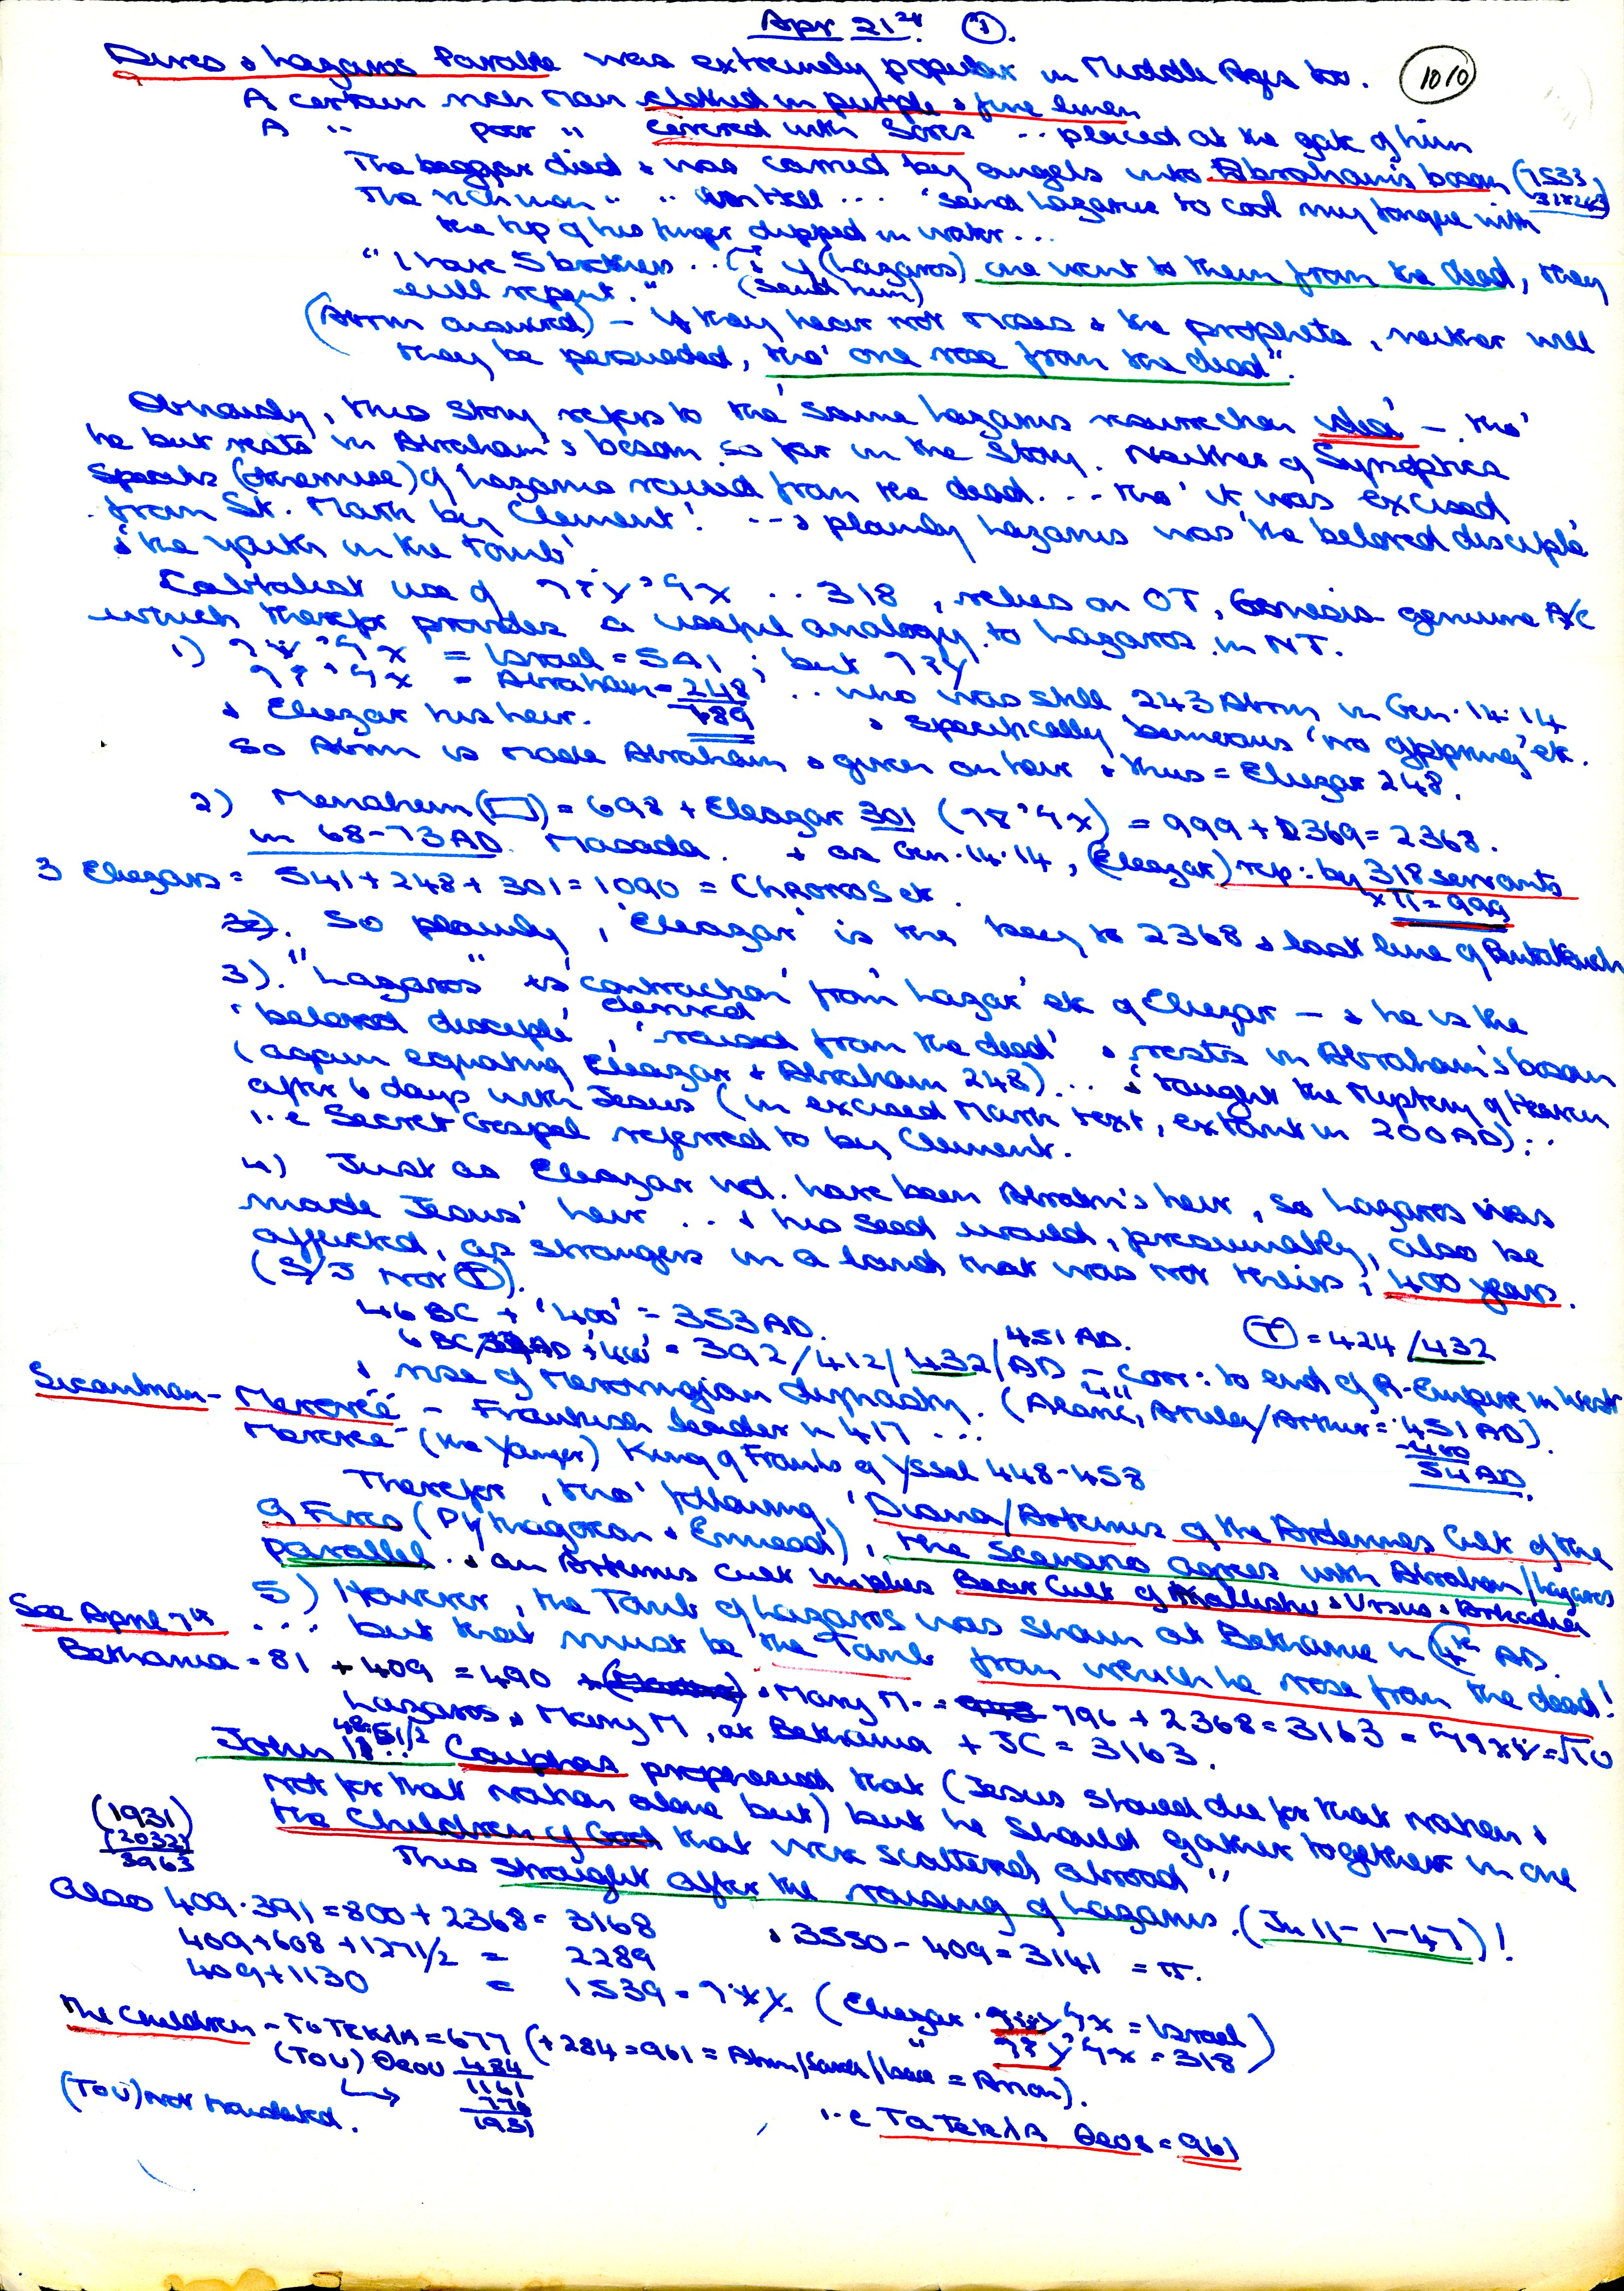 Apr 21st. (1).
1010
Dives & Lazaros Parable was extremely popular in Middle Ages too.
A certain rich man clothed in purple & fine linen
A " poor " covered with sores .. placed at the gate of him
The beggar died & was carried by angels into Abraham's bosom (7533,
The rich man " " in Hell ... "send Lazarus to cool my tongue with
the tip of his finger dipped in water ...
"I have 5 brothers .. (& if (Lazaros) one went to them from the dead, they
will repent." (send him)
(Abrm answered) - if they hear not Moses & the prophets, neither will
they be persuaded, tho' one rose from the dead".
Obviously, this story refers to the same Lazarus resurrection idea - tho'
he but rests in Abraham's bosom so far in the story. Neither of Synoptics
speaks (otherwise) of Lazarus raised from the dead ... tho' it was excised
from St. Mark by Clement! ... & plainly Lazarus was 'the beloved disciple'
& 'the youth in the tomb'
Cabbalist use of .. 318, relies on OT, Genesis genuine A/c
which therefor provides a useful analogy to Lazaros in NT.
1) = Israel = 541 ; but
= Abraham = 248 .. who was still 243 Abrm in Gen. 14.14
& Eliezar his heir. 789 & specifically bemoans 'no offpring' etc.
So Abrm is made Abraham & given an heir & thus = Eliezar 248.
2) Menahem = 698 + Eleazar 301 = 999 + 1369 = 2368.
in 68-73AD. Masada. & as Gen. 14.14, (Eleazar) rep: by 318 servants
x π = 999
3 Eliezars = 541 + 248 + 301 = 1090 = Chronos etc.
So plainly, 'Eleazar' is the key to 2368 & last line of Pentateuch
3). "Lazaros" is 'contraction from' Lazar' etc of Eliezar - & he is the
derived
'beloved disciple', 'raised from the dead' & rests in Abraham's bosom
(again equating Eleazar & Abraham 248) ... & taught the Mystery of Heaven
after 6 days with Jesus (in excised Mark text, extant in 200AD) :.
i.e Secret Gospel referred to by Clement.
4) Just as Eleazar wd. have been Abrahm's heir, so Lazaros was
made Jesus' heir ... & his seed would, presumably, also be
afflicted, as strangers in a land that was not theirs; 400 years.
(S/J not (T)).
46 BC + '400' = 353AD.
451 AD. (T) = 424/432
6 BC + '400' = 392/412/432/AD - corr: to end of R. Empire in West
& rise of Merovingian dynasty. (Alaric, Attila/Arthur = 451 AD).
400
54 AD
Sicambrian - Merovée - Frankish leader in 417 ...
Merovée (the Younger) King of Franks of Yssel 448-458
Therefor, tho' following 'Diana/Artemis of the Ardennes Cult of the
parallel & an Artemis cult implies Bear Cult of Kallisto & Ursus & Arkadia
of Fires (Pythagoran & Ennead), the scenario agrees with Abraham/Lazaros
5) However, the Tomb of Lazaros was shown at Bethania in 4th AD.
See April 7th .... but that must be the Tomb from whence he rose from the dead!
Bethania = 81 + 409 = 490 & Mary M. = 796 + 2368 = 3163 = √10
Lazaros & Mary M, at Bethania + JC = 3163.
48 51/2
John 11:. Caiaphas prophesied that (Jesus should die for that nation &
not for that nation alone but) but he should gather together in one
the Children of God that were scattered abroad"
(1931)
(2032)
3963
This straight after the raising of Lazarus. (Jn 11-1-47)!
Also 409.391 = 800 + 2368 = 3168 & 3550 - 409 = 3141 = π.
409 + 608 + 1271/2 = 2289
409 + 1130 = 1539 = (Eliezar = Israel)
" = 318
The Children - Ta Tekna = 677 (+ 284 = 961 = Abrm/Sarah/Isaac = Arron).
(Tou) Θeou 484
1161
770
1931
(Tou) not translated.
i.e Ta Tekna Θeos = 961